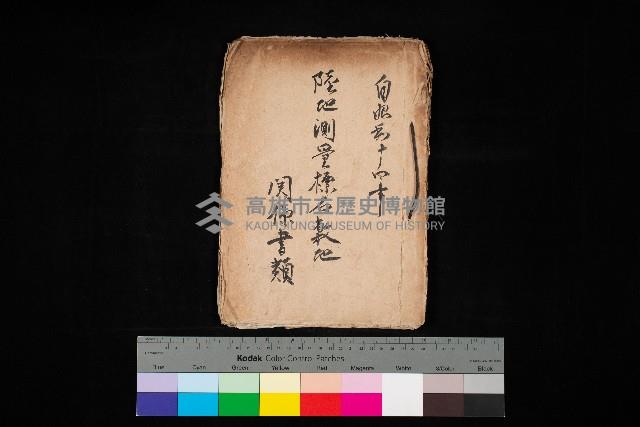 自昭和十四年
陸地測量標石敷地
関係書類
高雄市立歷史博物館
KAOHSIUNG MUSEUM OF HISTORY
Kodak Color Control Patches
Blue Cyan Green Yellow Red Magenta White 3/Color Black